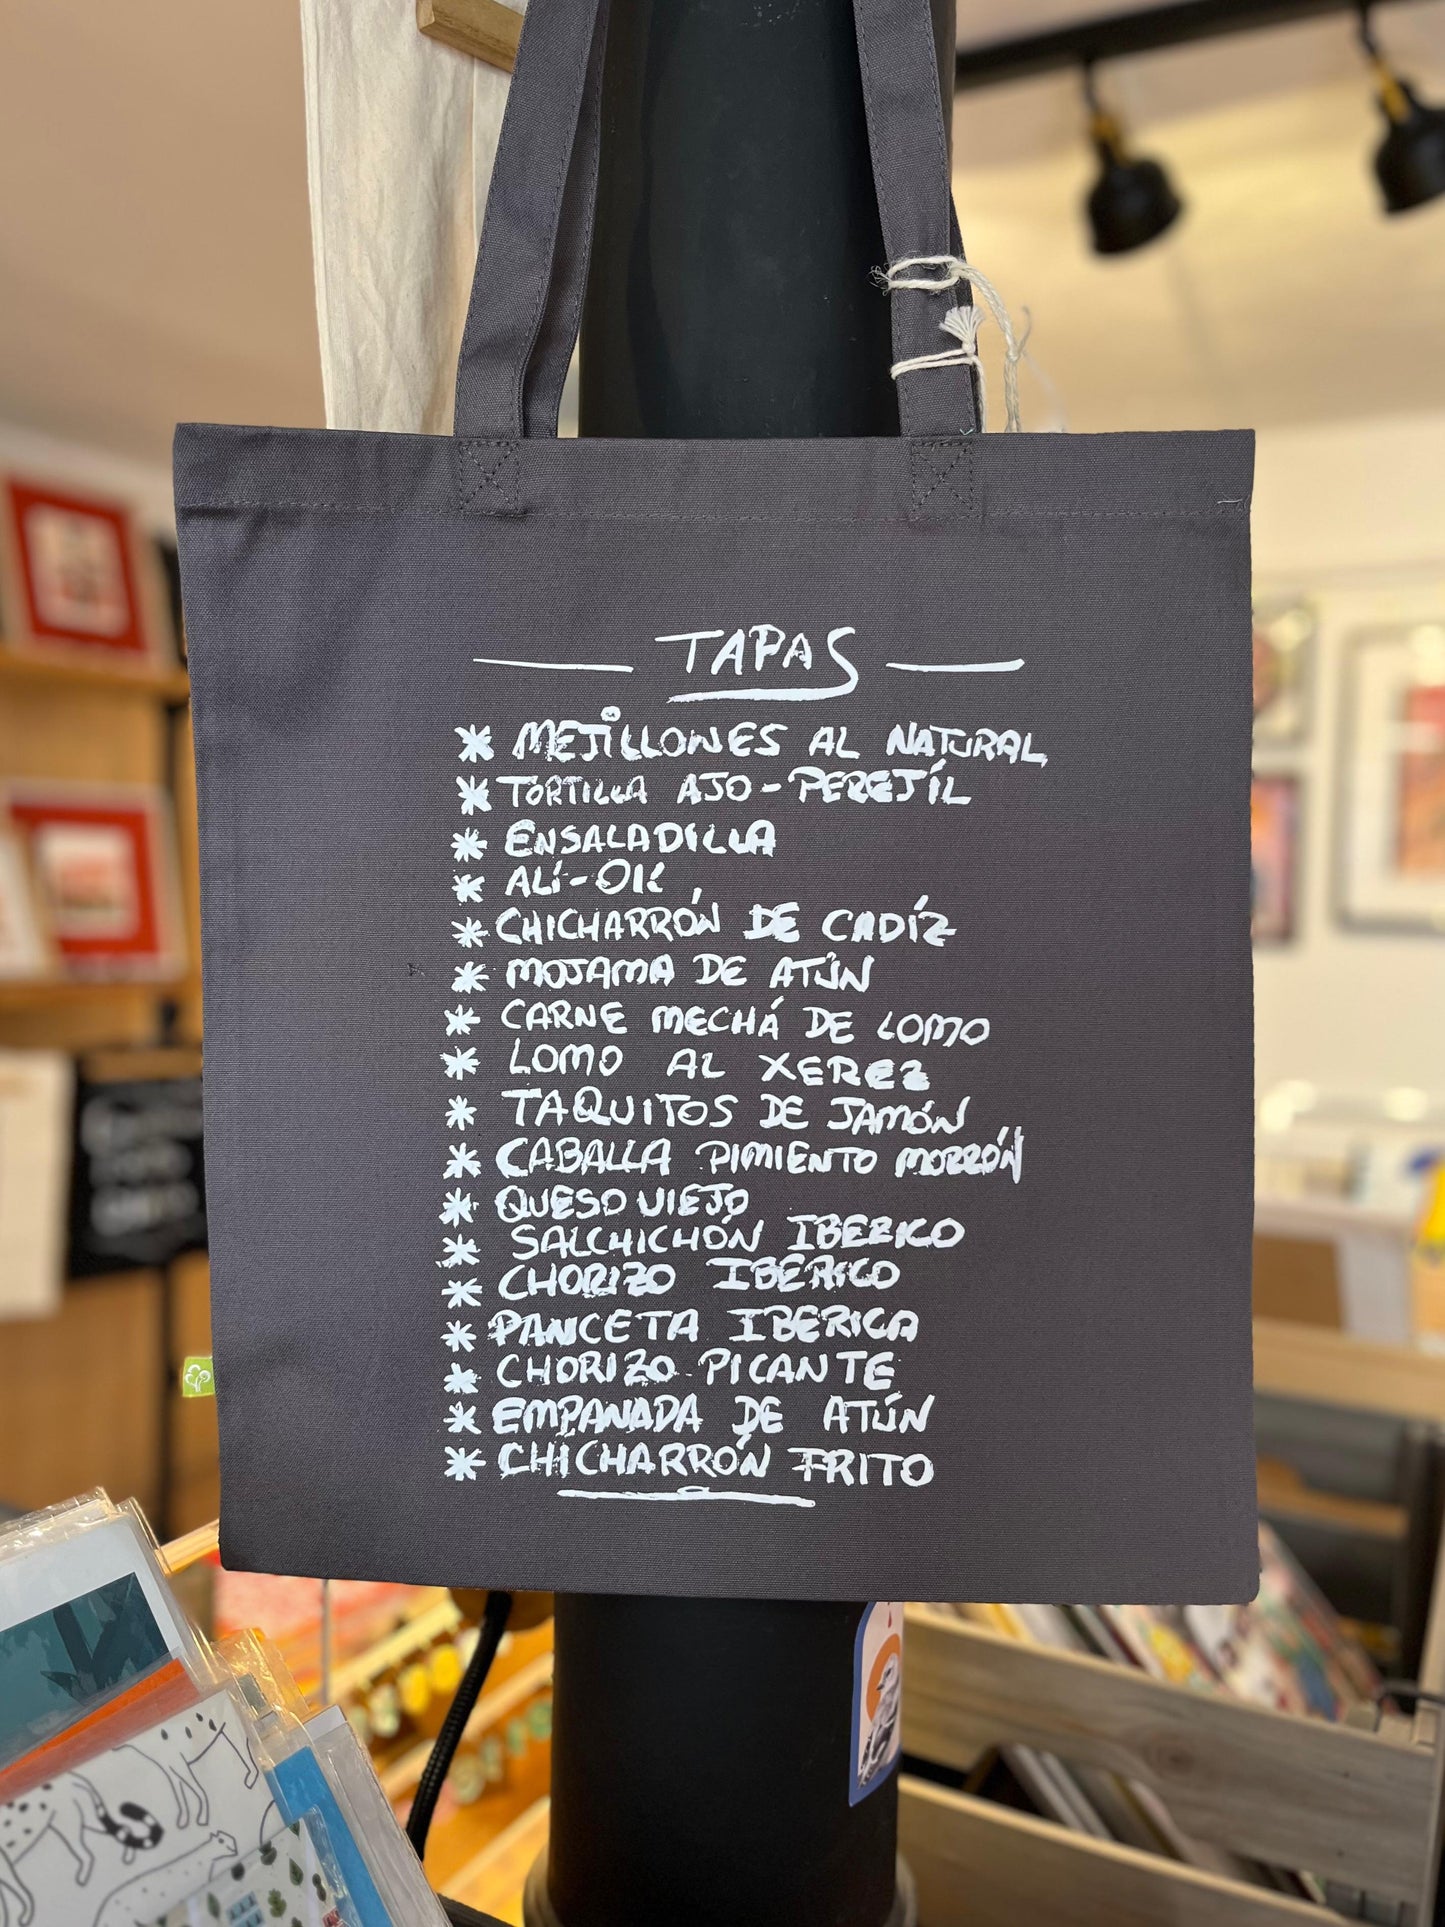 TAPAS
* MEJILLONES AL NATURAL
* TORTILLA AJO-PEREJÍL
* ENSALADILLA
* ALÍ-OLI
* CHICHARRÓN DE CADÍZ
* MOJAMA DE ATÚN
* CARNE MECHÁ DE LOMO
* LOMO AL XEREZ
* TAQUITOS DE JAMÓN
* CABALLA PIMIENTO MORRÓN
* QUESO VIEJO
* SALCHICHÓN IBERICO
* CHORIZO IBERICO
* PANCETA IBERICA
* CHORIZO PICANTE
* EMPANADA DE ATÚN
* CHICHARRÓN FRITO